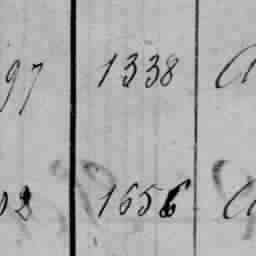 97 1338
02 1656